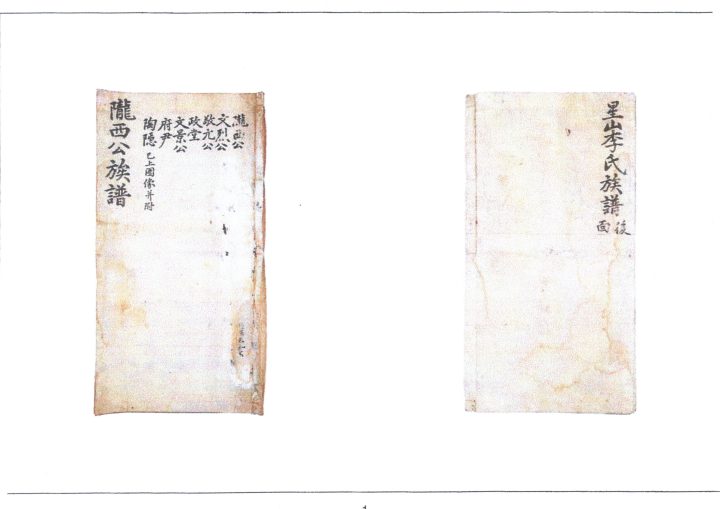 隴西公
文烈公
敬元公
政堂
文景公
府尹
陶隱 已上圖像并附
隴西公族譜
星山李氏族譜 後面